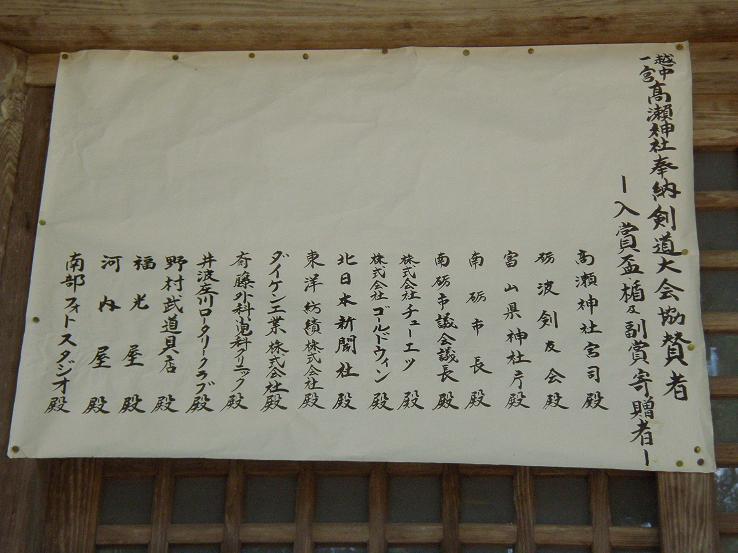 越中一宮高瀬神社奉納剣道大会協賛者
ー入賞盃・楯及副賞寄贈者ー
高瀬神社宮司殿
砺波剣友会殿
富山県神社庁殿
南砺市長殿
南砺市議会議長殿
株式会社チューエツ殿
株式会社ゴールドウィン殿
北日本新聞社殿
東洋紡績株式会社殿
ダイケン工業株式会社殿
斉藤外科小児科クリニック殿
井波庄川ロータリークラブ殿
野村武道具店殿
福光屋殿
河内屋殿
南部フォトスタジオ殿